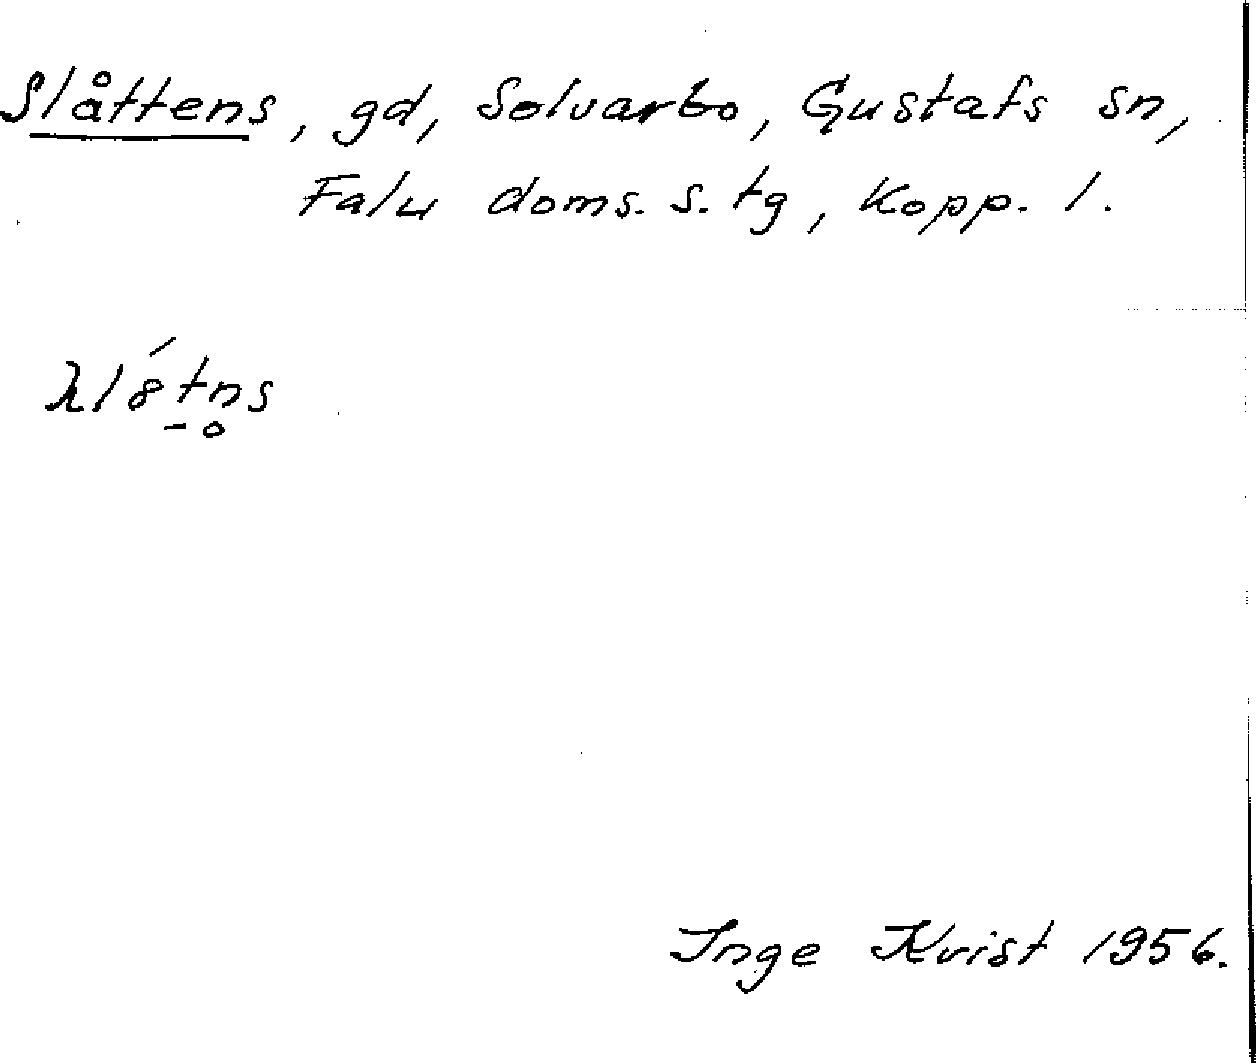 Slåttens, gd, Solvarbo, Gustafs sn,
Falu doms. s. tg, Kopp. l.
Inge Kvist 1956.